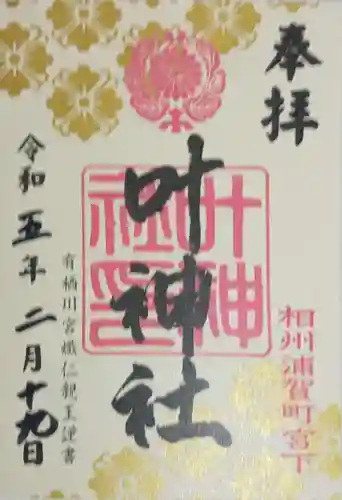 奉拝
相州浦賀町宮下
叶神社
叶神社印
有栖川宮熾仁親王謹書
令和五年二月十九日